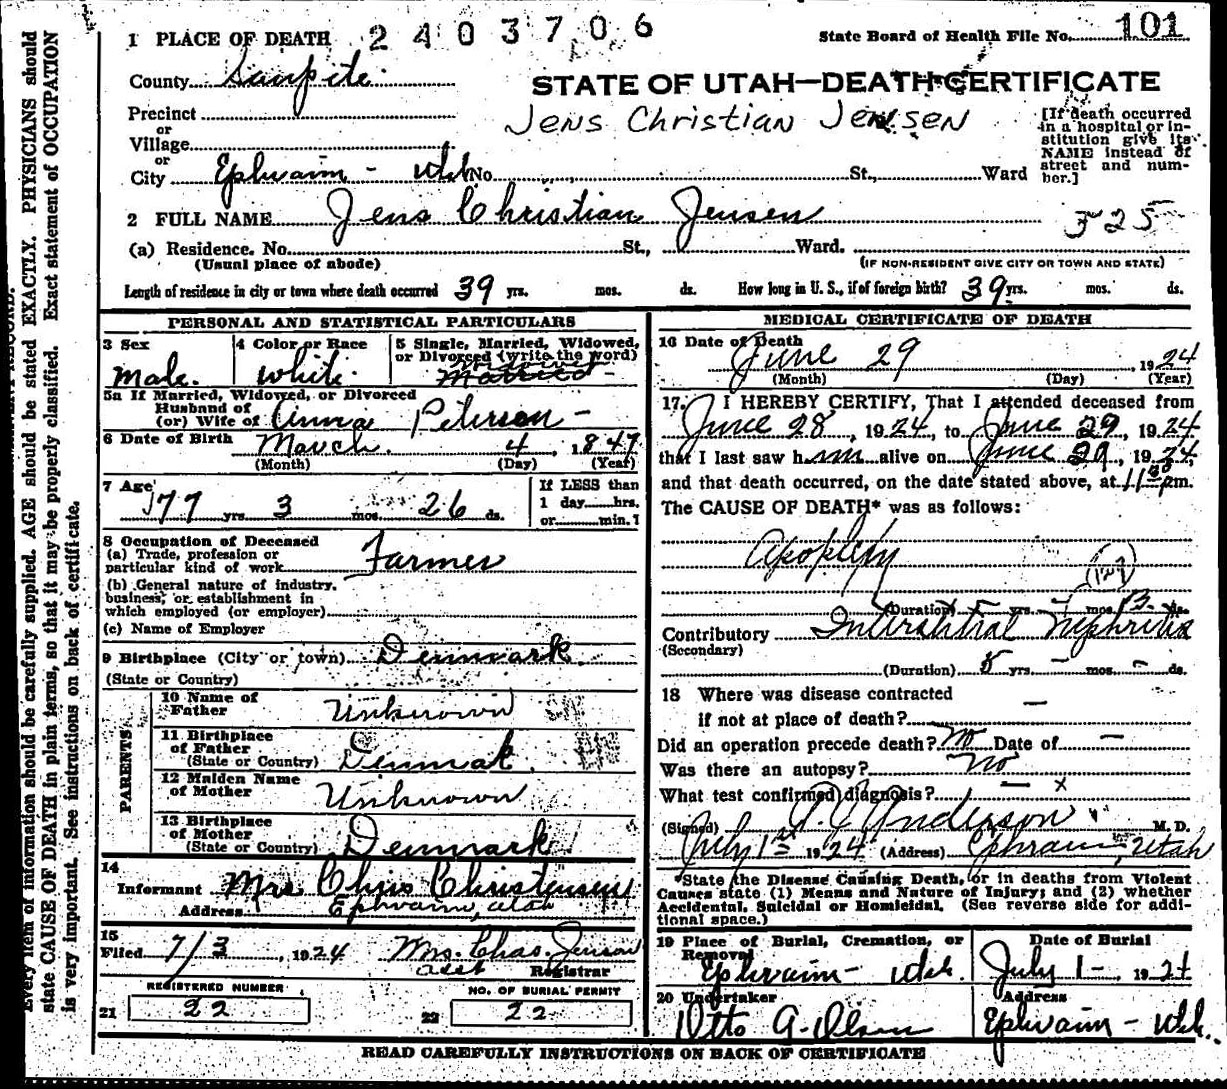 1 PLACE OF DEATH 2403706 State Board of Health File No. 101
County Sanpete
STATE OF UTAH—DEATH CERTIFICATE
Precinct
or
Village
or
City Ephraim - Utah No. St., Ward
Jens Christian Jensen
[If death occurred
in a hospital or in-
stitution give its
NAME instead of
street and num-
ber.]
2 FULL NAME Jens Christian Jensen
325
(a) Residence. No. St., Ward.
(Usual place of abode) (IF NON-RESIDENT GIVE CITY OR TOWN AND STATE)
Length of residence in city or town where death occurred 39 yrs. mos. ds. How long in U. S., if of foreign birth? 39 yrs. mos. ds.
PERSONAL AND STATISTICAL PARTICULARS
3 Sex
Male.
4 Color or Race
White.
5 Single, Married, Widowed,
or Divorced (write the word)
Widower
Married
5a If Married, Widowed, or Divorced
Husband of
(or) Wife of Anna Peterson -
6 Date of Birth March. 4, 1847
(Month) (Day) (Year)
7 Age
77 yrs. 3 mos. 26 ds.
If LESS than
1 day hrs.
or min. ?
8 Occupation of Deceased
(a) Trade, profession or
particular kind of work Farmer
(b) General nature of industry,
business, or establishment in
which employed (or employer)
(c) Name of Employer
9 Birthplace (City or town) Denmark.
(State or Country)
PARENTS
10 Name of
Father Unknown
11 Birthplace
of Father
(State or Country) Denmark.
12 Maiden Name
of Mother Unknown
13 Birthplace
of Mother
(State or Country) Denmark
14
Informant Mrs Chris Christensen
Address Ephraim, Utah
15
Filed 7/3, 1924 Mrs. Chas. Jenson
Asst Registrar
REGISTERED NUMBER
21 22
NO. OF BURIAL PERMIT
22 22
MEDICAL CERTIFICATE OF DEATH
16 Date of Death
June 29, 1924
(Month) (Day) (Year)
17. I HEREBY CERTIFY, That I attended deceased from
June 28, 1924, to June 29, 1924
that I last saw him alive on June 29, 1924,
and that death occurred, on the date stated above, at 11 pm.
The CAUSE OF DEATH* was as follows:
Apoplexy
(Duration) yrs. mos. ds.
Contributory Interstitial Nephritis
(Secondary)
(Duration) 5 yrs. - mos. - ds.
18 Where was disease contracted
if not at place of death? —
Did an operation precede death? No Date of —
Was there an autopsy? No
What test confirmed diagnosis? — x
(Signed) Anderson M. D.
July 1st 1924 (Address) Ephraim, Utah
*State the Disease Causing Death, or in deaths from Violent
Causes state (1) Means and Nature of Injury; and (2) whether
Accidental, Suicidal or Homicidal. (See reverse side for addi-
tional space.)
19 Place of Burial, Cremation, or
Removal
Ephraim - Utah.
Date of Burial
July 1 -, 1924
20 Undertaker
Otto A. Olsen
Address
Ephraim - Utah.
READ CAREFULLY INSTRUCTIONS ON BACK OF CERTIFICATE
Every item of information should be carefully supplied. AGE should be stated EXACTLY. PHYSICIANS should
state CAUSE OF DEATH in plain terms, so that it may be properly classified. Exact statement of OCCUPATION
is very important. See instructions on back of certificate.